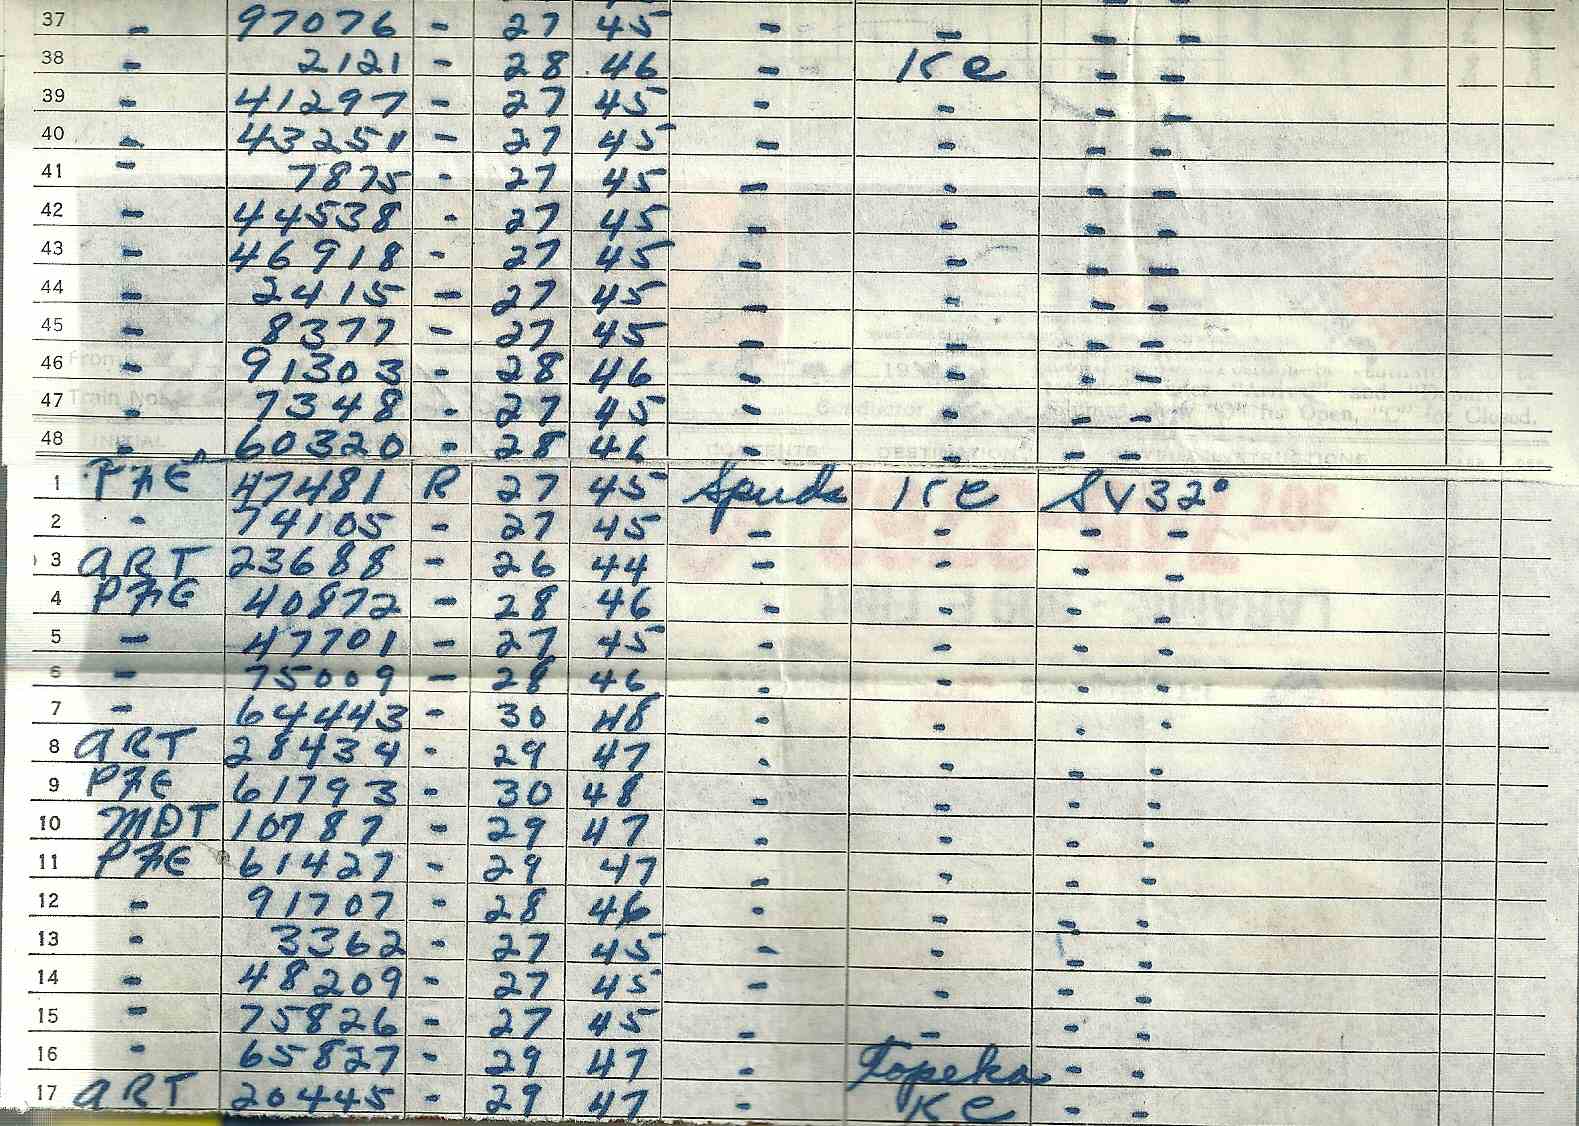 37 - 97076 - 27 45 - - - -
38 - 2121 - 28 46 - KC - -
39 - 41297 - 27 45 - - - -
40 - 43251 - 27 45 - - - -
41 - 7875 - 27 45 - - - -
42 - 44538 - 27 45 - - - -
43 - 46918 - 27 45 - - - -
44 - 2415 - 27 45 - - - -
45 - 8377 - 27 45 - - - -
46 - 91303 - 28 46 - - - -
47 - 7348 - 27 45 - - - -
48 - 60320 - 28 46 - - - -
1 PFE 47481 R 27 45 Spuds KC SV32°
2 - 74105 - 27 45 - - - -
3 ART 23688 - 26 44 - - - -
4 PFE 40872 - 28 46 - - - -
5 - 47701 - 27 45 - - - -
6 - 75009 - 28 46 - - - -
7 - 64443 - 30 48 - - - -
8 ART 28434 - 29 47 - - - -
9 PFE 61793 - 30 48 - - - -
10 MDT 10787 - 29 47 - - - -
11 PFE 61427 - 29 47 - - - -
12 - 91707 - 28 46 - - - -
13 - 3362 - 27 45 - - - -
14 - 48209 - 27 45 - - - -
15 - 75826 - 27 45 - - - -
16 - 65827 - 29 47 - Topeka - -
17 ART 20445 - 29 47 - KC - -